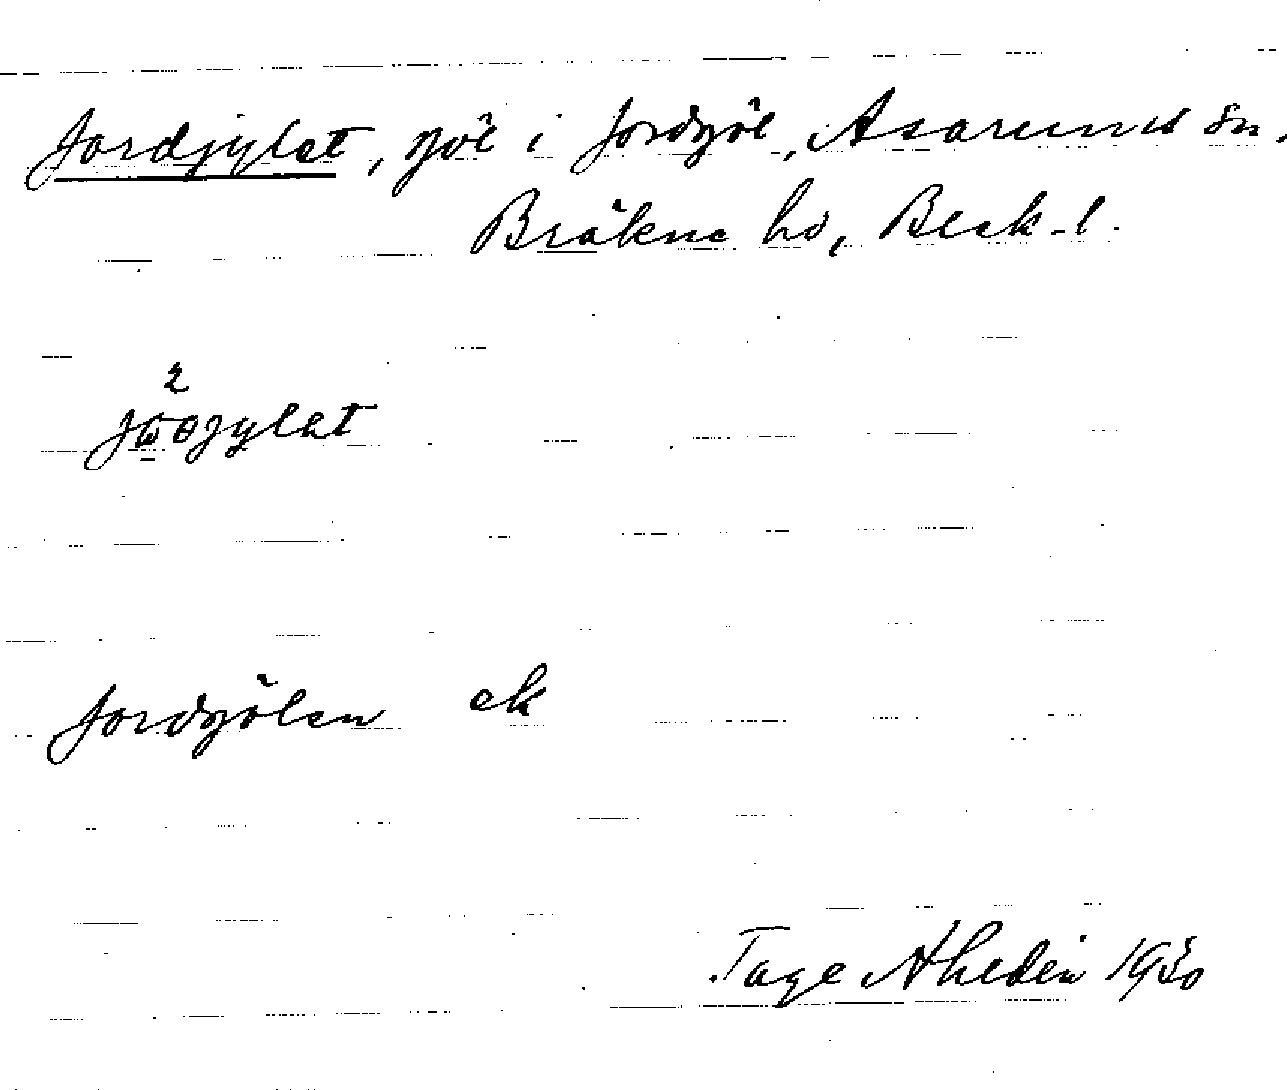 Jordjylet, göl i Jordgöl, Asarums sn,
Bräkne hd, Blek. l.
2
Jordgölen ek
Tage Ahldén 1930